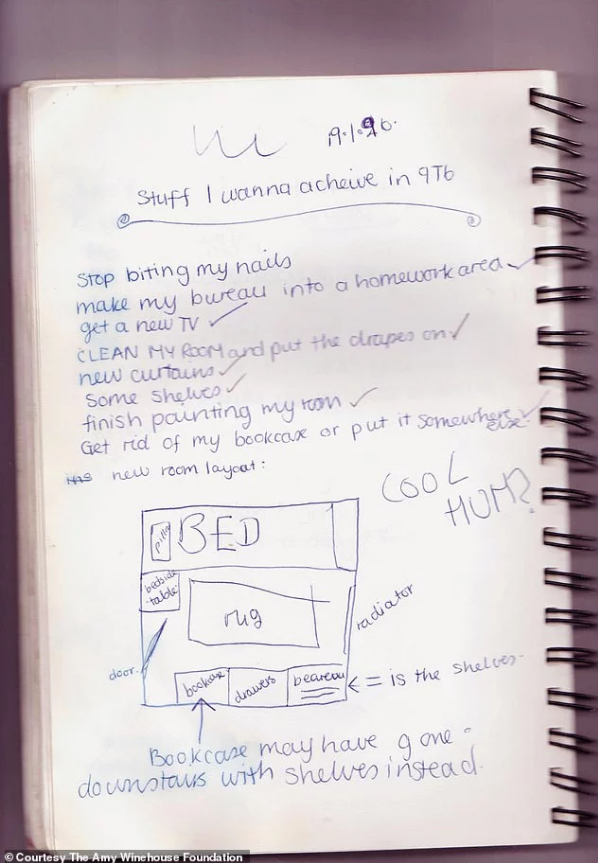 19.1.96.
Stuff I wanna acheive in 9T6
Stop biting my nails
make my bureau into a homework area
get a new TV
CLEAN MY ROOM and put the drapes on
new curtains
some shelves
finish painting my room
Get rid of my bookcase or put it somewhere
else.
new room layout:
COOL
MUM?
BED
bedside
table
rug
radiator
door.
bookcase
drawers
beareau
= is the shelves.
Bookcase may have gone
downstairs with shelves instead.
© Courtesy The Amy Winehouse Foundation